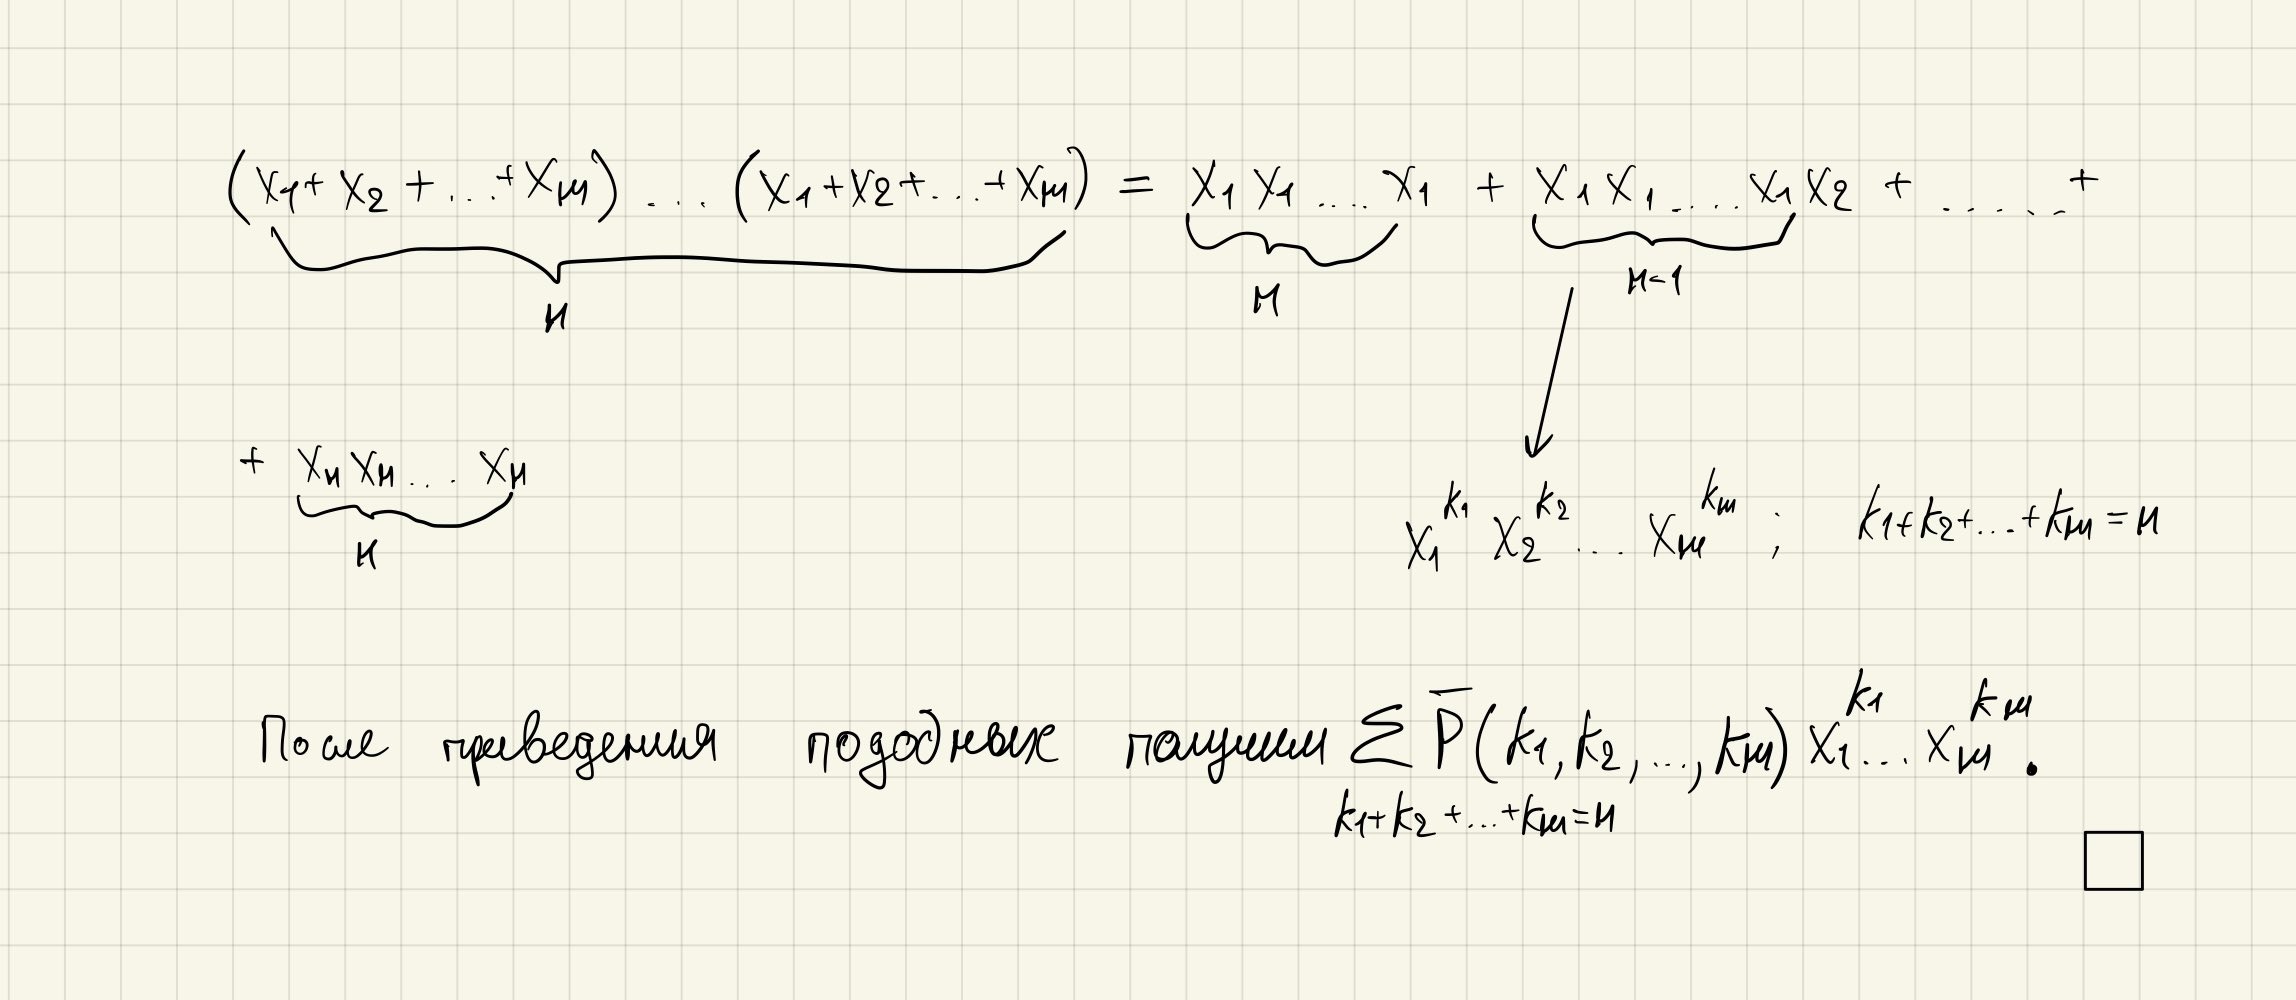 (x₁ + x₂ + ... + xₘ) ... (x₁ + x₂ + ... + xₘ) = x₁ x₁ .... x₁ + x₁ x₁ .... x₁ x₂ + ...... +
n n n-1
+ xₙ xₙ ... xₙ
n
x₁^k₁ x₂^k₂ ... xₘ^kₘ ; k₁ + k₂ + ... + kₘ = n
После приведения подобных получим ∑ P̅(k₁, k₂, ..., kₘ) x₁^k₁ ... xₘ^kₘ .
k₁ + k₂ + ... + kₘ = n